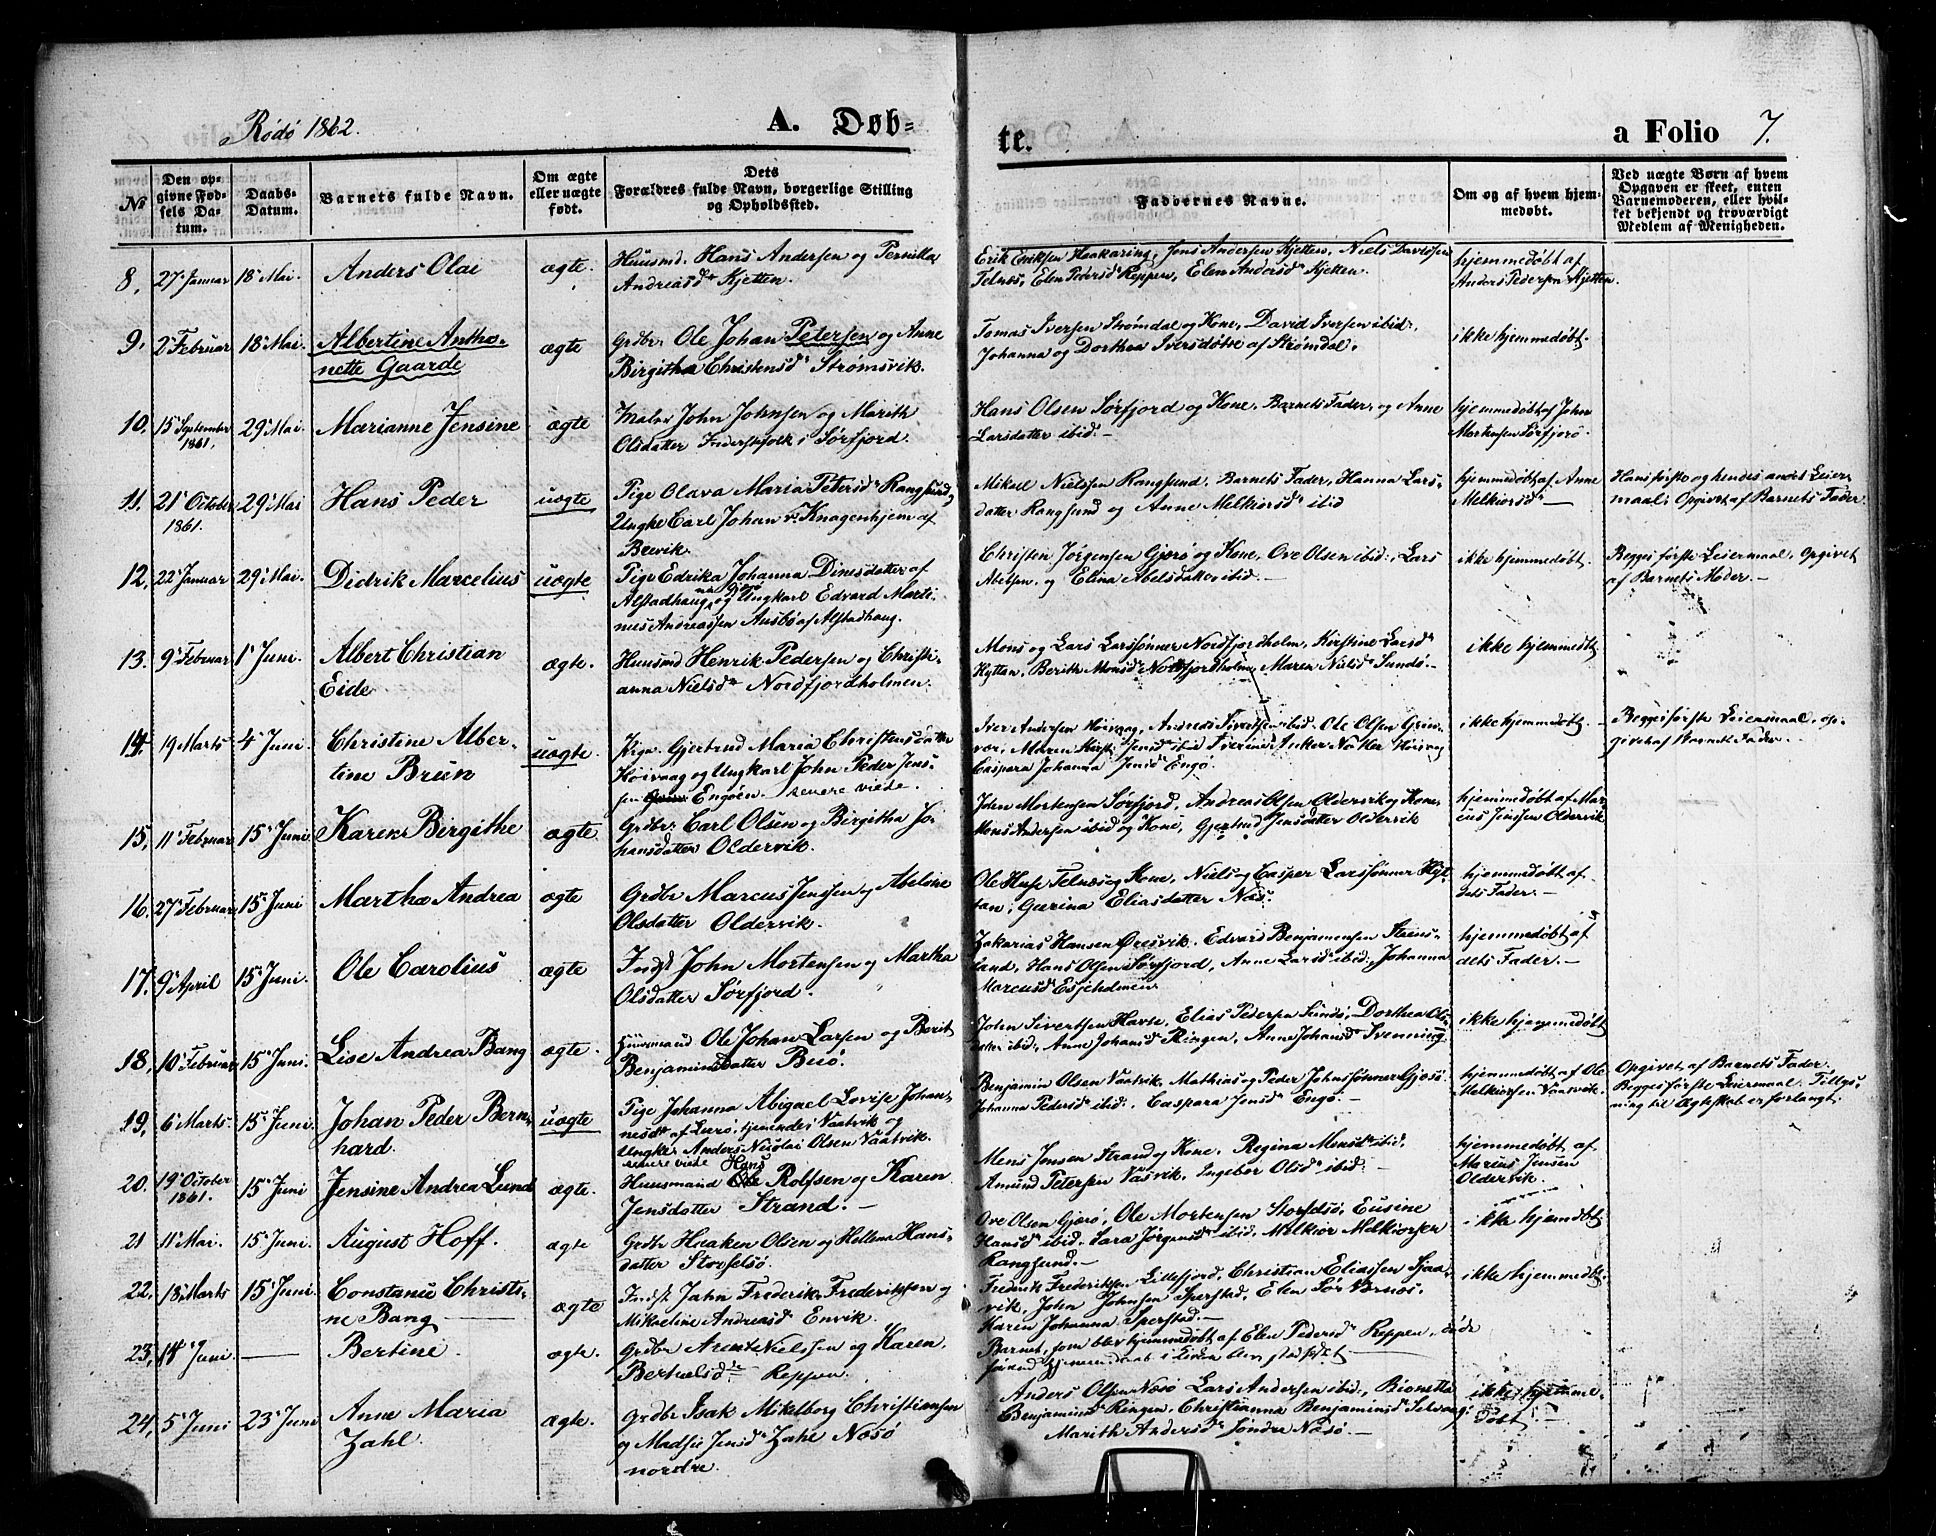 Rödö 1862.
A. Døb-
te.
a Folio 7.
№
Den op-
givne Fød-
sels Da-
tum.
Daabs-
Datum.
Barnets fulde Navn.
Om ægte
eller uægte
født.
Dets
Forældres fulde Navn, borgerlige Stilling
og Opholdssted.
Faddernes Navne.
Om og af hvem hjem-
medøbt.
Ved uægte Børn af hvem
Opgaven er skeet, enten
Barnemoderen, eller hvil-
ket bekjendt og troværdigt
Medlem af Menigheden.
8, 27 Januar 18 Mai. Anders Olai ægte.
Huusmd. Hans Andersen og Pernilla
Andreasd. Kjetten.
Erik Eriksen Haakaring, Jens Andersen Kjetten, Niels Davidsen
Telnæs, Elen Pedersd. Reppen, Elen Andersd. Kjetten.
hjemmedøbt af
Anders Pedersen Kjetten.
9, 2 Februar 18 Mai. Albertine Antho-
nette Gaarde
ægte
Grdbr. Ole Johan Petersen og Anne
Birgitha Christensd. Strømsvik.
Tomas Iversen Strømdal og Kone, David Iversen ibid.
Johanna og Dorthea Iversdøtre af Strømdal.
ikke hjemmedøbt.
10, 15 September
1861,
29 Mai. Marianne Jensine ægte
John Johnsen og Marith
Olsdatter Inderstfolk i Sørfjord.
Hans Olsen Sørfjord og Kone, Barnets Fader, og Anne
Larsdatter ibid.-
hjemmedøbt af John
Mortensen Sørfjord.
11, 21 October
1861.
29 Mai Hans Peder uægte
Pige Olava Maria Petersd. Rangsund,
Ungke Carl Johan Knagenhjem af
Brevik.
Mikel Nielsen Rangsund. Barnets Fader, Hanna Lars-
datter Rangsund og Anne Melkiorsd. ibid
hjemmedøbt af Anne
Melkiorsd. -
Hans første og hendes andet Leier-
maal. Opgivet af Barnets Fader.
12, 22 Januar 29 Mai. Didrik Marcelius uægte
Pige Edrika Johanna Dinesdatter af
Alstadhaug, og Ungkarl Edvard Marti-
nus Andreassen Ausbø af Alstadhaug.
Christen Jørgensen Gjerø og Kone, Ove Olsen ibid., Lars
Abelsen, og Elina Abelsdatter ibid.-
ikke hjemmedøbt.
Begges første Leiermaal, opgivet
af Barnets Moder.-
13. 9 Februar 1 Juni. Albert Christian
Eide
ægte.
Huusmd Henrik Pedersen og Christi-
anna Nielsd. Nordfjordholmen.
Mons og Lars Larssønner Nordfjordholm, Kirstine Larsd.
Hyttan, Berith Monsd. Nordfjordholm, Maren Nielsd. Sundø.-
ikke hjemmedøbt
14. 19 Marts 4 Juni. Christine Alber-
tine Brun
uægte.
Pige Gjertrud Maria Christensdatter
Høivaag og Ungkarl John Peder Jens-
sen Engøen. senere viede.
Iver Andersen Høivaag, Andreas Sivertsen ibid. Ole Olsen Grøn-
Maren Kirst. Jensd. ibid
Caspara Johanna Jensd. Engø.
ikke hjemmedøbt.
Begges første Leiermaal, op-
givet af Barnets Fader.
15, 11 Februar 15 Juni. Karen Birgithe ægte.
Grdbr. Carl Olsen og Birgitha Jo-
hansdatter Oldervik.
John Mortensen Sørfjord, Andreas Olsen Oldervik og Kone
Mons Andersen ibid og Kone, Gjertrud Jensdatter Oldervik
hjemmedøbt af Mar-
cus Jenssen Oldervik
16. 27 Februar 15 Juni Martha Andrea ægte
Grdbr Marcus Jenssen og Abelone
Olsdatter Oldervik.
Ole Telnæs og Kone, Niels og Casper Larssønner Hyt-
tan, Eliasdatter Næs.
hjemmedøbt af
dets Fader.-
17. 9 April 15 Juni. Ole Carolius ægte
Indst John Mortensen og Martha
Olsdatter Sørfjord.
Zakarias Hansen Øresvik, Edvard Benjaminsen Stens-
land, Hans Olsen Sørfjord, Anne Larsd. ibid., Johanna
Marcusd. Esjeholmen.
hjemmedøbt af
dets Fader.-
18, 10 Februar 15 Juni. Lise Andrea Bang ægte.
Huusmand Ole Johan Larsen og Berit
Benjaminsdatter Buø.
John Sivertsen Havte, Elias Pedersen Sundø, Dorthea Ols-
datter ibid., Anne Johansd. Ringen, Anne Johansd. Svenning
ikke hjemmedøbt
19, 6 Marts 15 Juni: Johan Peder Bern-
hard.
uægte
Pige Johanna Abigael Lovise Johan-
nesd. af Lurø, tjenende i Vaatvik og
Ungkr Anders Nicolai Olsen Vaatvik.
senere viede
Benjamin Olsen Vaatvik, Mathias og Peder Johnsønner Gjesø.
Johanna Pedersd. ibid., Caspara Jensd. Engø.-
hjemmedøbt af Ole
Melkiorsen Vaatvik.
Opgivet af Barnets Fader.
Begges første Leiermaal. Tillys-
ning til Ægteskab er forlangt.
20. 19 October
1861.
15 Juni Jensine Andrea Lund ægte.
Huusmand Hans Rolfsen og Karen
Jensdatter Strand.-
Mons Jensen Strand og Kone, Regina Monsd. ibid.
Amund Petersen Vasvik, Ingebor Olsd. ibid.-
hjemmedøbt af
Marius Jensen
Oldervik.
21 11 Mai. 15 Juni. August Hoff. ægte
Grdbr Haaken Olsen og Hellena Hans-
datter Storselsø.
Ove Olsen Gjærø, Ole Mortensen Storselsø, Eusine
Hansd. ibid. Sara Jørgensd. ibid. Melkior Melkiorsen
Rangsund.-
ikke hjemdøbt
22, 18 Marts 15 Juni. Constance Christi-
ne Bang
ægte
Indst. Jahn Frederik Frederiksen og
Mikaeline Andreasd. Envik.
Fredrik Frederiksen Lillefjord, Christian Eliassen Sjaa-
vik, John Johnsen Sperstad, Elen Sør Værnes.
Karen Johanna Sperstad.-
ikke hjemmedøbt.
23, 14 Juni. — Bertine. ægte.
Grdbr Arent Nielssen og Karen
Berthelsd. Reppen.
Barnet, som blev hjemmedøbt af Elen Pedersd. Reppen, døde
24, 5 Juni 23 Juni Anne Maria
Zahl.
ægte.
Grdbr Isak Mikelborg Christiansen
og Madsie Jensd. Zahl Næsø
nordre.
Anders Olsen Næsø Lars Andersen ibid., Bionetta
Benjamind. Ringen, Christianna Benjaminsd. Selvaag,
Marith Andersd. Søndre Næsø.-
ikke hjemme-
døbt